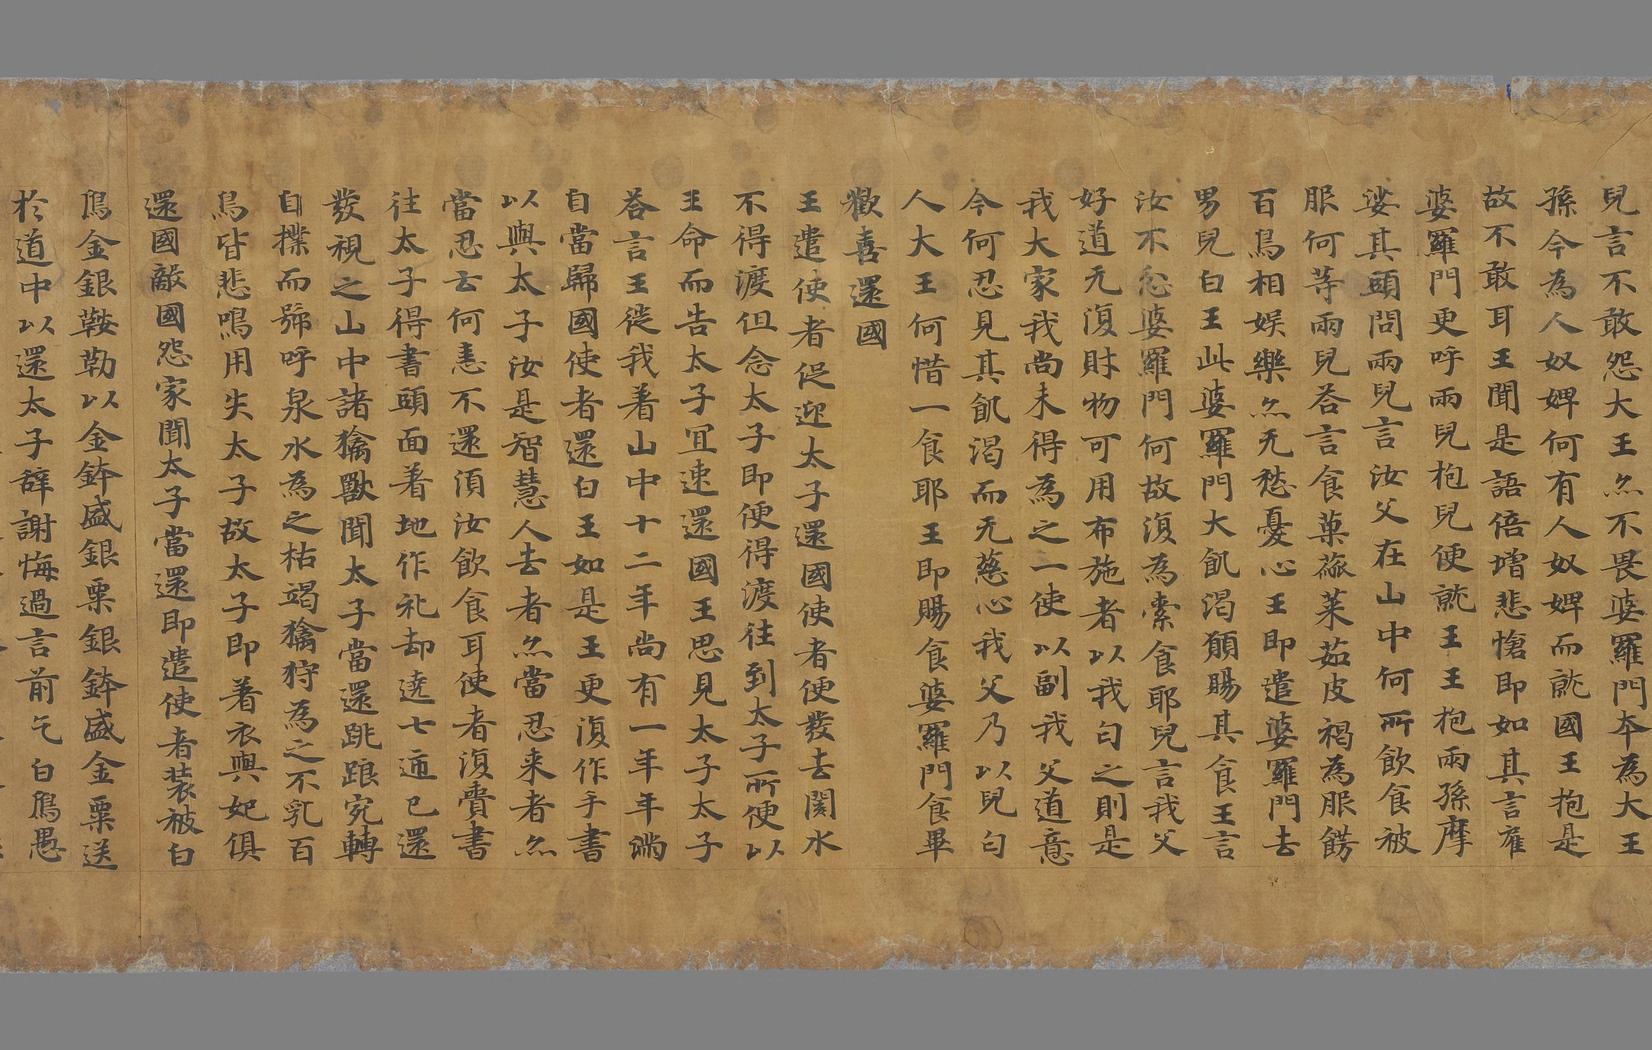 兒言不敢怨大王亦不畏婆羅門夲為大王
孫今為人奴婢何有人奴婢而就國王抱是
故不敢耳王聞是語倍增悲愴即如其言雇
婆羅門更呼兩兒抱兒便就王王抱兩孫摩
娑其頭問兩兒言汝父在山中何所飲食被
服何等兩兒荅言食菓蓏菜茹皮褐為服餝
百鳥相娛樂亦无愁憂心王即遣婆羅門去
男兒白王此婆羅門大飢渴願賜其食王言
汝不忿婆羅門何故復為索食耶兒言我父
好道无復財物可用布施者以我匃之則是
我大家我尚未得為之一使以副我父道意
今何忍見其飢渴而无慈心我父乃以兒匃
人大王何惜一食耶王即賜食婆羅門食畢
歡喜還國
王遣使者促迎太子還國使者便發去閡水
不得渡但念太子即便得渡往到太子所便以
王命而告太子宜速還國王思見太子太子
荅言王徙我著山中十二年尚有一年年滿
自當歸國使者還白王如是王更復作手書
以與太子汝是智慧人去者亦當忍来者亦
當忍云何恚不還湏汝飲食耳使者復賫書
往太子得書頭面著地作礼却遶七迊已還
發視之山中諸獦獸聞太子當還跳踉宛轉
自撲而號呼泉水為之枯竭獦狩為之不乳百
鳥皆悲鳴用失太子故太子即著衣與妃俱
還國敵國怨家聞太子當還即遣使者装被白
鳥金銀鞍勒以金鉢盛銀粟銀鉢盛金粟送
於道中以還太子辞謝悔過言前乞白鳥愚